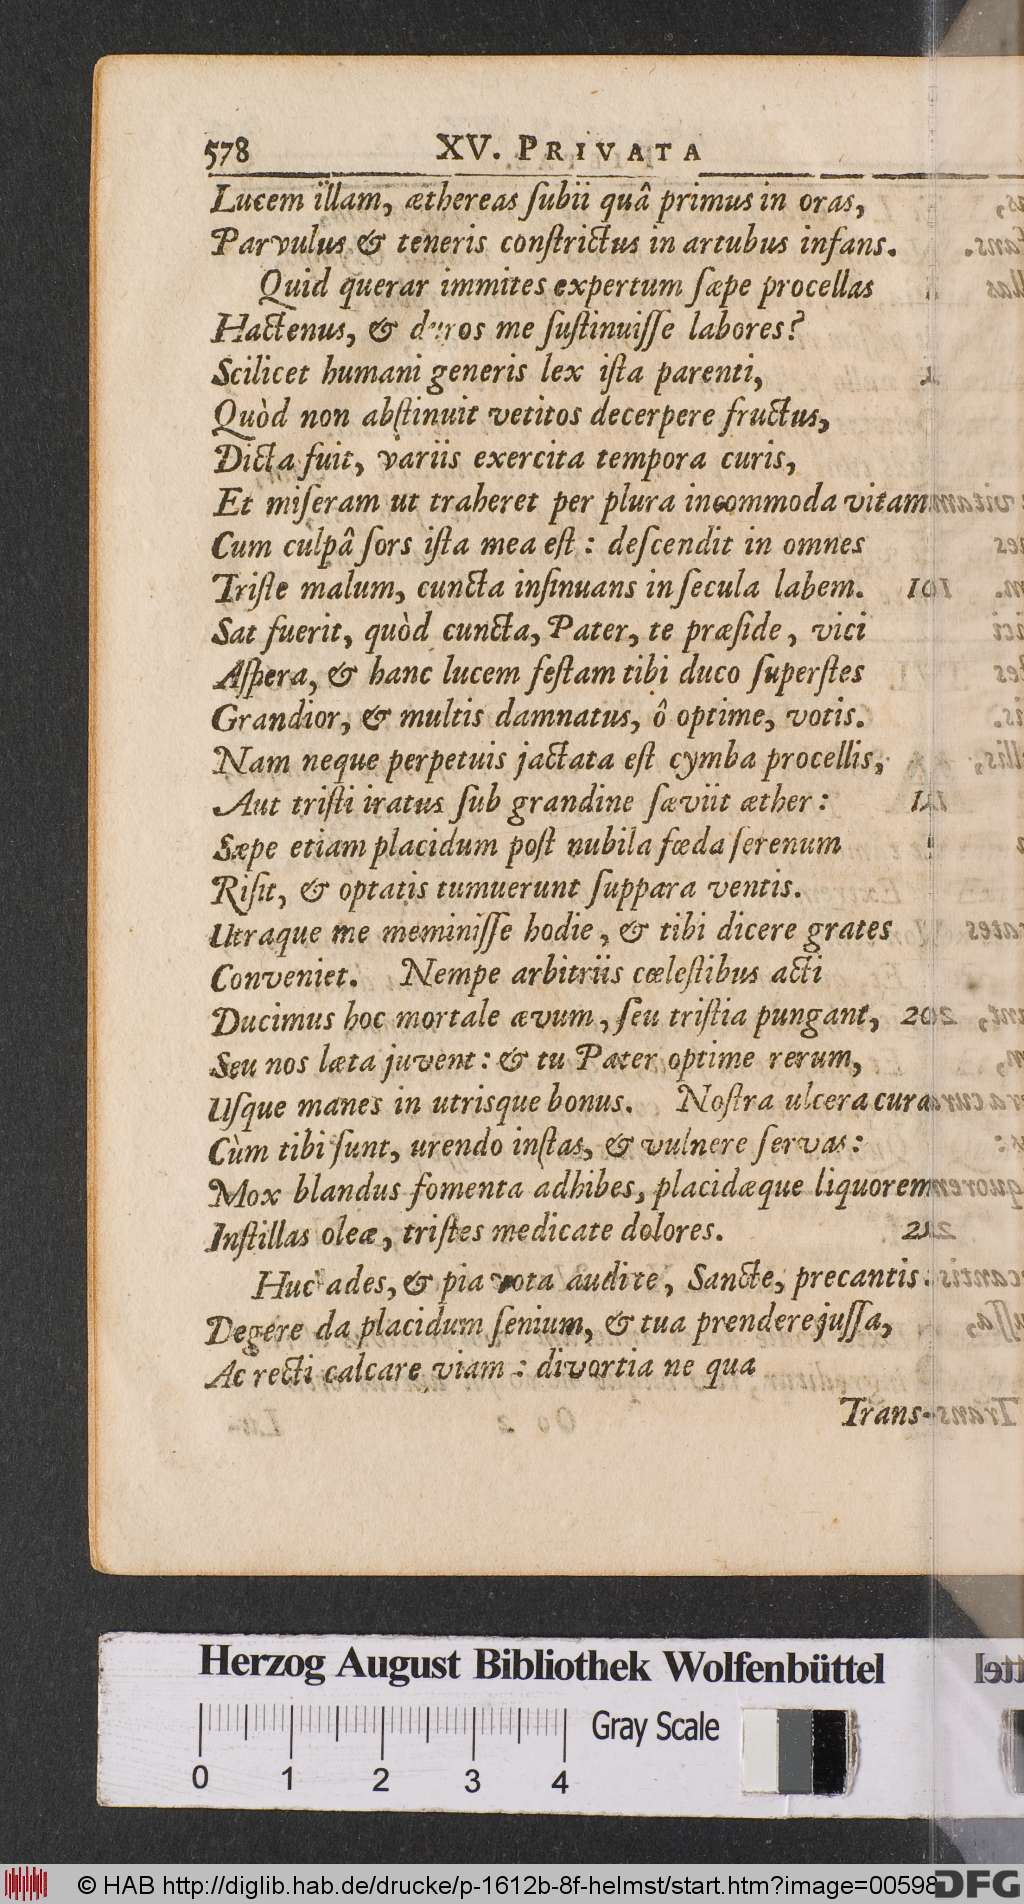 578 XV. PRIVATA
Lucem illam, æthereas ſubii quâ primus in oras,
Parvulus & teneris conſtrictus in artubus infans.
Quid querar immites expertum ſæpe procellas
Hactenus, & duros me ſuſtinuiſſe labores?
Scilicet humani generis lex iſta parenti,
Quòd non abſtinuit vetitos decerpere fructus,
Dicta fuit, variis exercita tempora curis,
Et miſeram ut traheret per plura incommoda vitam
Cum culpâ ſors iſta mea eſt: deſcendit in omnes
Triſte malum, cuncta inſinuans in ſecula labem.
Sat fuerit, quòd cuncta, Pater, te præſide, vici
Aſpera, & hanc lucem feſtam tibi duco ſuperſtes
Grandior, & multis damnatus, ô optime, votis.
Nam neque perpetuis jactata eſt cymba procellis,
Aut triſti iratus ſub grandine ſæviit æther:
Sæpe etiam placidum poſt nubila fœda ſerenum
Riſit, & optatis tumuerunt ſuppara ventis.
Utraque me meminiſſe hodie, & tibi dicere grates
Conveniet. Nempe arbitriis cœleſtibus acti
Ducimus hoc mortale ævum, ſeu triſtia pungant,
Seu nos læta juvent: & tu Pater optime rerum,
Uſque manes in utrisque bonus. Noſtra ulcera cura
Cùm tibi ſunt, urendo inſtas, & vulnere ſervas:
Mox blandus fomenta adhibes, placidæque liquorem
Inſtillas oleæ, triſtes medicate dolores.
Huc ades, & pia vota audite, Sancte, precantis.
Degere da placidum ſenium, & tua prendere juſſa,
Ac recti calcare viam: divortia ne qua
Trans-
Herzog August Bibliothek Wolfenbüttel
Gray Scale
0 1 2 3 4
© HAB http://diglib.hab.de/drucke/p-1612b-8f-helmst/start.htm?image=00598
DFG